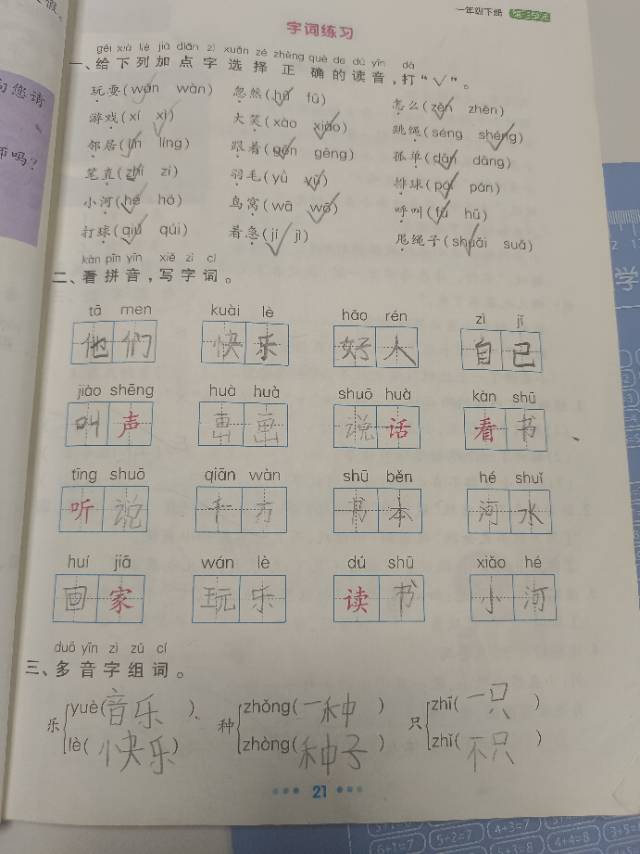 一年级下册
字词练习
gěi xià liè jiā diǎn zì xuǎn zé zhèng què de dú yīn dǎ
一、给下列加点字选择正确的读音,打“√”。
玩耍(wán wàn) 忽然(hū fū) 怎么(zěn zhěn)
游戏(xí xì) 大笑(xào xiào) 跳绳(séng shéng)
邻居(lín líng) 跟着(gēn gēng) 孤单(dān dāng)
笔直(zhí zí) 羽毛(yǔ yǔ) 排球(pái pán)
小河(hé hó) 鸟窝(wā wō) 呼叫(fū hū)
打球(qiú qúi) 着急(jí jì) 甩绳子(shuǎi suǎ)
kàn pīn yīn xiě zì cí
二、看拼音,写字词。
tā men kuài lè hǎo rén zì jǐ
他们 快乐 好人 自己
jiào shēng huà huà shuō huà kàn shū
叫声 画画 说话 看书
tīng shuō qiān wàn shū běn hé shuǐ
听说 千万 书本 河水
huí jiā wán lè dú shū xiǎo hé
回家 玩乐 读书 小河
duō yīn zì zǔ cí
三、多音字组词。
乐 yuè(音乐) lè(快乐)
种 zhǒng(一种) zhòng(种子)
只 zhī(一只) zhǐ(不只)
21